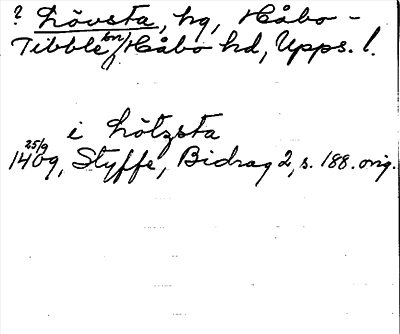 ? Lövsta, hg, Håbo-
Tibble sn, Håbo hd, Upps. l.
i Lötzsta
25/9 1409, Styffe, Bidrag 2, s. 188. orig.